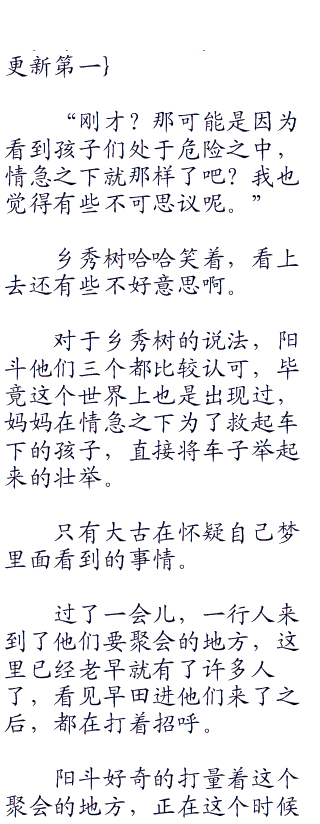 更新第一}
“刚才？那可能是因为
看到孩子们处于危险之中，
情急之下就那样了吧？我也
觉得有些不可思议呢。”
乡秀树哈哈笑着，看上
去还有些不好意思啊。
对于乡秀树的说法，阳
斗他们三个都比较认可，毕
竟这个世界上也是出现过，
妈妈在情急之下为了救起车
下的孩子，直接将车子举起
来的壮举。
只有大古在怀疑自己梦
里面看到的事情。
过了一会儿，一行人来
到了他们要聚会的地方，这
里已经老早就有了许多人
了，看见早田进他们来了之
后，都在打着招呼。
阳斗好奇的打量着这个
聚会的地方，正在这个时候